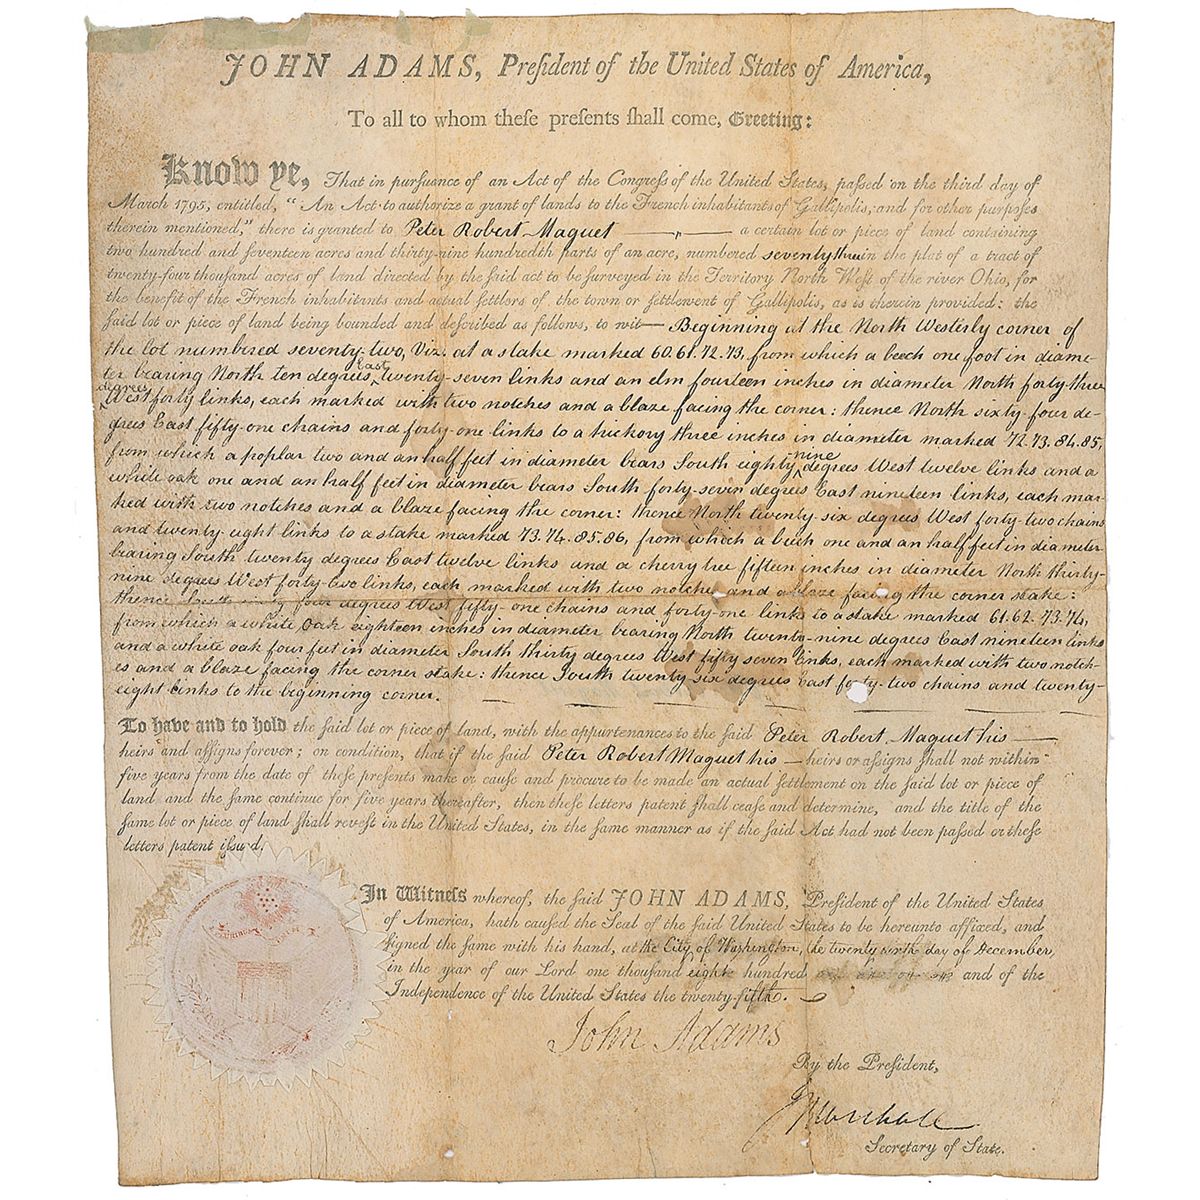 JOHN ADAMS, Preſident of the United States of America,
To all to whom theſe preſents ſhall come, Greeting:
Know ye, That in purſuance of an Act of the Congreſs of the United States, paſſed on the third day of
March 1795, entitled, “An Act to authorize a grant of lands to the French inhabitants of Gallipolis, and for other purpoſes
therein mentioned,” there is granted to Peter Robert Maguet a certain lot or piece of land containing
two hundred and seventeen acres and thirty-nine hundredth parts of an acre, numbered seventy three in the plat of a tract of
twenty-four thouſand acres of land directed by the ſaid act to be ſurveyed in the Territory North West of the river Ohio, for
the benefit of the French inhabitants and actual ſettlers of the town or ſettlement of Gallipolis, as is therein provided: the
ſaid lot or piece of land being bounded and deſcribed as follows, to wit— Beginning at the North Westerly corner of
the lot numbered seventy-two, Viz. at a stake marked 60.61.72.73, from which a beech one foot in diame-
ter bearing North ten degrees East twenty-seven links and an elm fourteen inches in diameter North forty three
degrees West forty links, each marked with two notches and a blaze facing the corner: thence North sixty-four de-
grees East fifty-one chains and forty-one links to a hickory three inches in diameter marked 72.73.84.85,
from which a poplar two and an half feet in diameter bears South eighty nine degrees West twelve links and a
white oak one and an half feet in diameter bears South forty-seven degrees East nineteen links, each mar-
ked with two notches and a blaze facing the corner: thence North twenty-six degrees West forty-two chains
and twenty eight links to a stake marked 73.74.85.86, from which a beech one and an half feet in diameter
bearing South twenty degrees East twelve links and a cherry tree fifteen inches in diameter North thirty-
nine degrees West forty-two links, each marked with two notches and a blaze facing the corner stake:
thence South sixty four degrees West fifty-one chains and forty-one links to a stake marked 61.62.73.74,
from which a white oak eighteen inches in diameter bearing North twenty-nine degrees East nineteen links
and a white oak four feet in diameter South thirty degrees West fifty seven links, each marked with two notch-
es and a blaze facing the corner stake: thence South twenty six degrees East forty-two chains and twenty-
eight links to the beginning corner.
To have and to hold the ſaid lot or piece of land, with the appurtenances to the ſaid Peter Robert Maguet his
heirs and aſſigns forever; on condition, that if the ſaid Peter Robert Maguet his — heirs or aſſigns ſhall not within
five years from the date of theſe preſents make or cauſe and procure to be made an actual ſettlement on the ſaid lot or piece of
land and the ſame continue for five years thereafter, then theſe letters patent ſhall ceaſe and determine, and the title of the
ſame lot or piece of land ſhall reveſt in the United States, in the ſame manner as if the ſaid Act had not been paſſed or theſe
letters patent iſſued.
In Witneſs whereof, the ſaid JOHN ADAMS, Preſident of the United States
of America, hath cauſed the Seal of the ſaid United States to be hereunto affixed, and
ſigned the ſame with his hand, at the City of Washington, the twenty ninth day of December,
in the year of our Lord one thouſand eight hundred and of the
Independence of the United States the twenty-fifth.
John Adams
By the Preſident,
J Marshall
Secretary of State.